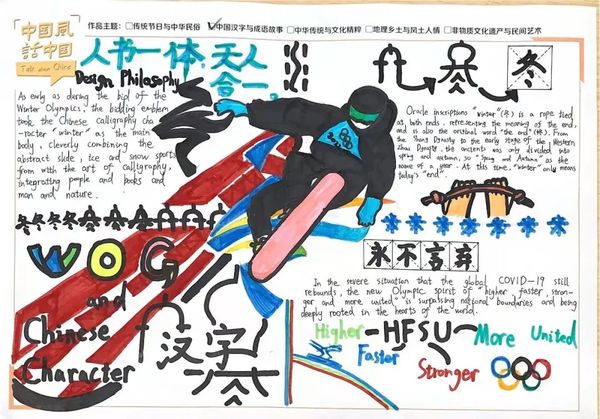 中国风
話中国
Talk about China
作品主题：□传统节日与中华民俗 ☑中国汉字与成语故事 □中华传统与文化精粹 □地理乡土与风土人情 □非物质文化遗产与民间艺术
人书一体,天人
合一。
Design Philosophy
As early as during the bid of the
Winter Olympics, the bidding emblem
took the Chinese Calligraphy cha
-racter "winter" as the main
body, cleverly combining the
abstract slide, ice and snow sports
from with the art of calligraphy
integrating people and books and
man and nature.
冬
Oracle inscriptions "winter"(冬) is a rope tied
at both ends, representing the meaning of the end,
and is also the original word "the end"(终). From
the Shang Dynasty to the early stage of the Western
Zhou Dynasty, the ancients was only divided into
spring and autumn, so "Spring and Autumn" as the
name of a year. At this time, "winter" only means
today's "end".
冬冬冬
WOG
and
Chinese
Character
汉字
永不言弃
In the severe situation that the global COVID-19 still
rebounds, the new Olympic spirit of "higher, faster, stron-
ger and more united" is surpassing national boundaries and being
deeply rooted in the hearts of the world.
Higher
HFSU
More United
Faster
Stronger